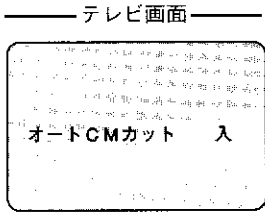 テレビ画面
オートCMカット 入